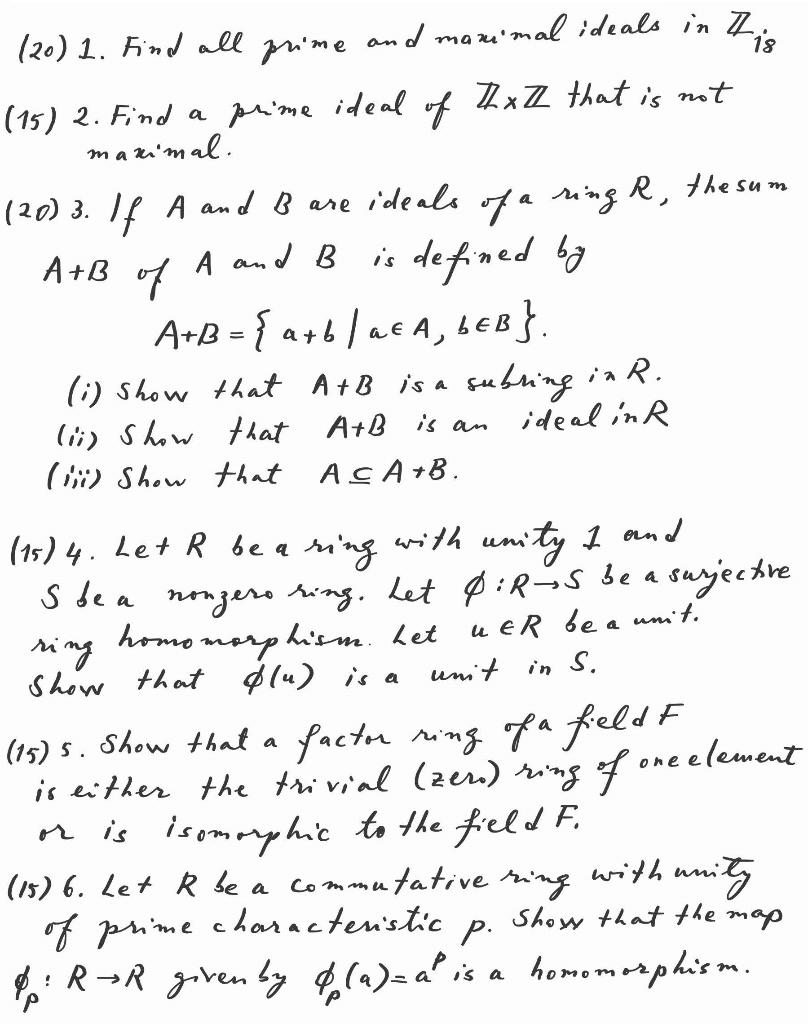 (20) 1. Find all prime and maximal ideals in ℤ₁₈
(15) 2. Find a prime ideal of ℤ×ℤ that is not
maximal.
(20) 3. If A and B are ideals of a ring R, the sum
A+B of A and B is defined by
A+B = { a+b | a∈A, b∈B }.
(i) Show that A+B is a subring in R.
(ii) Show that A+B is an ideal in R
(iii) Show that A ⊆ A+B.
(15) 4. Let R be a ring with unity 1 and
S be a nonzero ring. Let ϕ : R→S be a surjective
ring homomorphism. Let u∈R be a unit.
Show that ϕ(u) is a unit in S.
(15) 5. Show that a factor ring of a field F
is either the trivial (zero) ring of one element
or is isomorphic to the field F.
(15) 6. Let R be a commutative ring with unity
of prime characteristic p. Show that the map
ϕₚ : R→R given by ϕₚ(a) = aᵖ is a homomorphism.